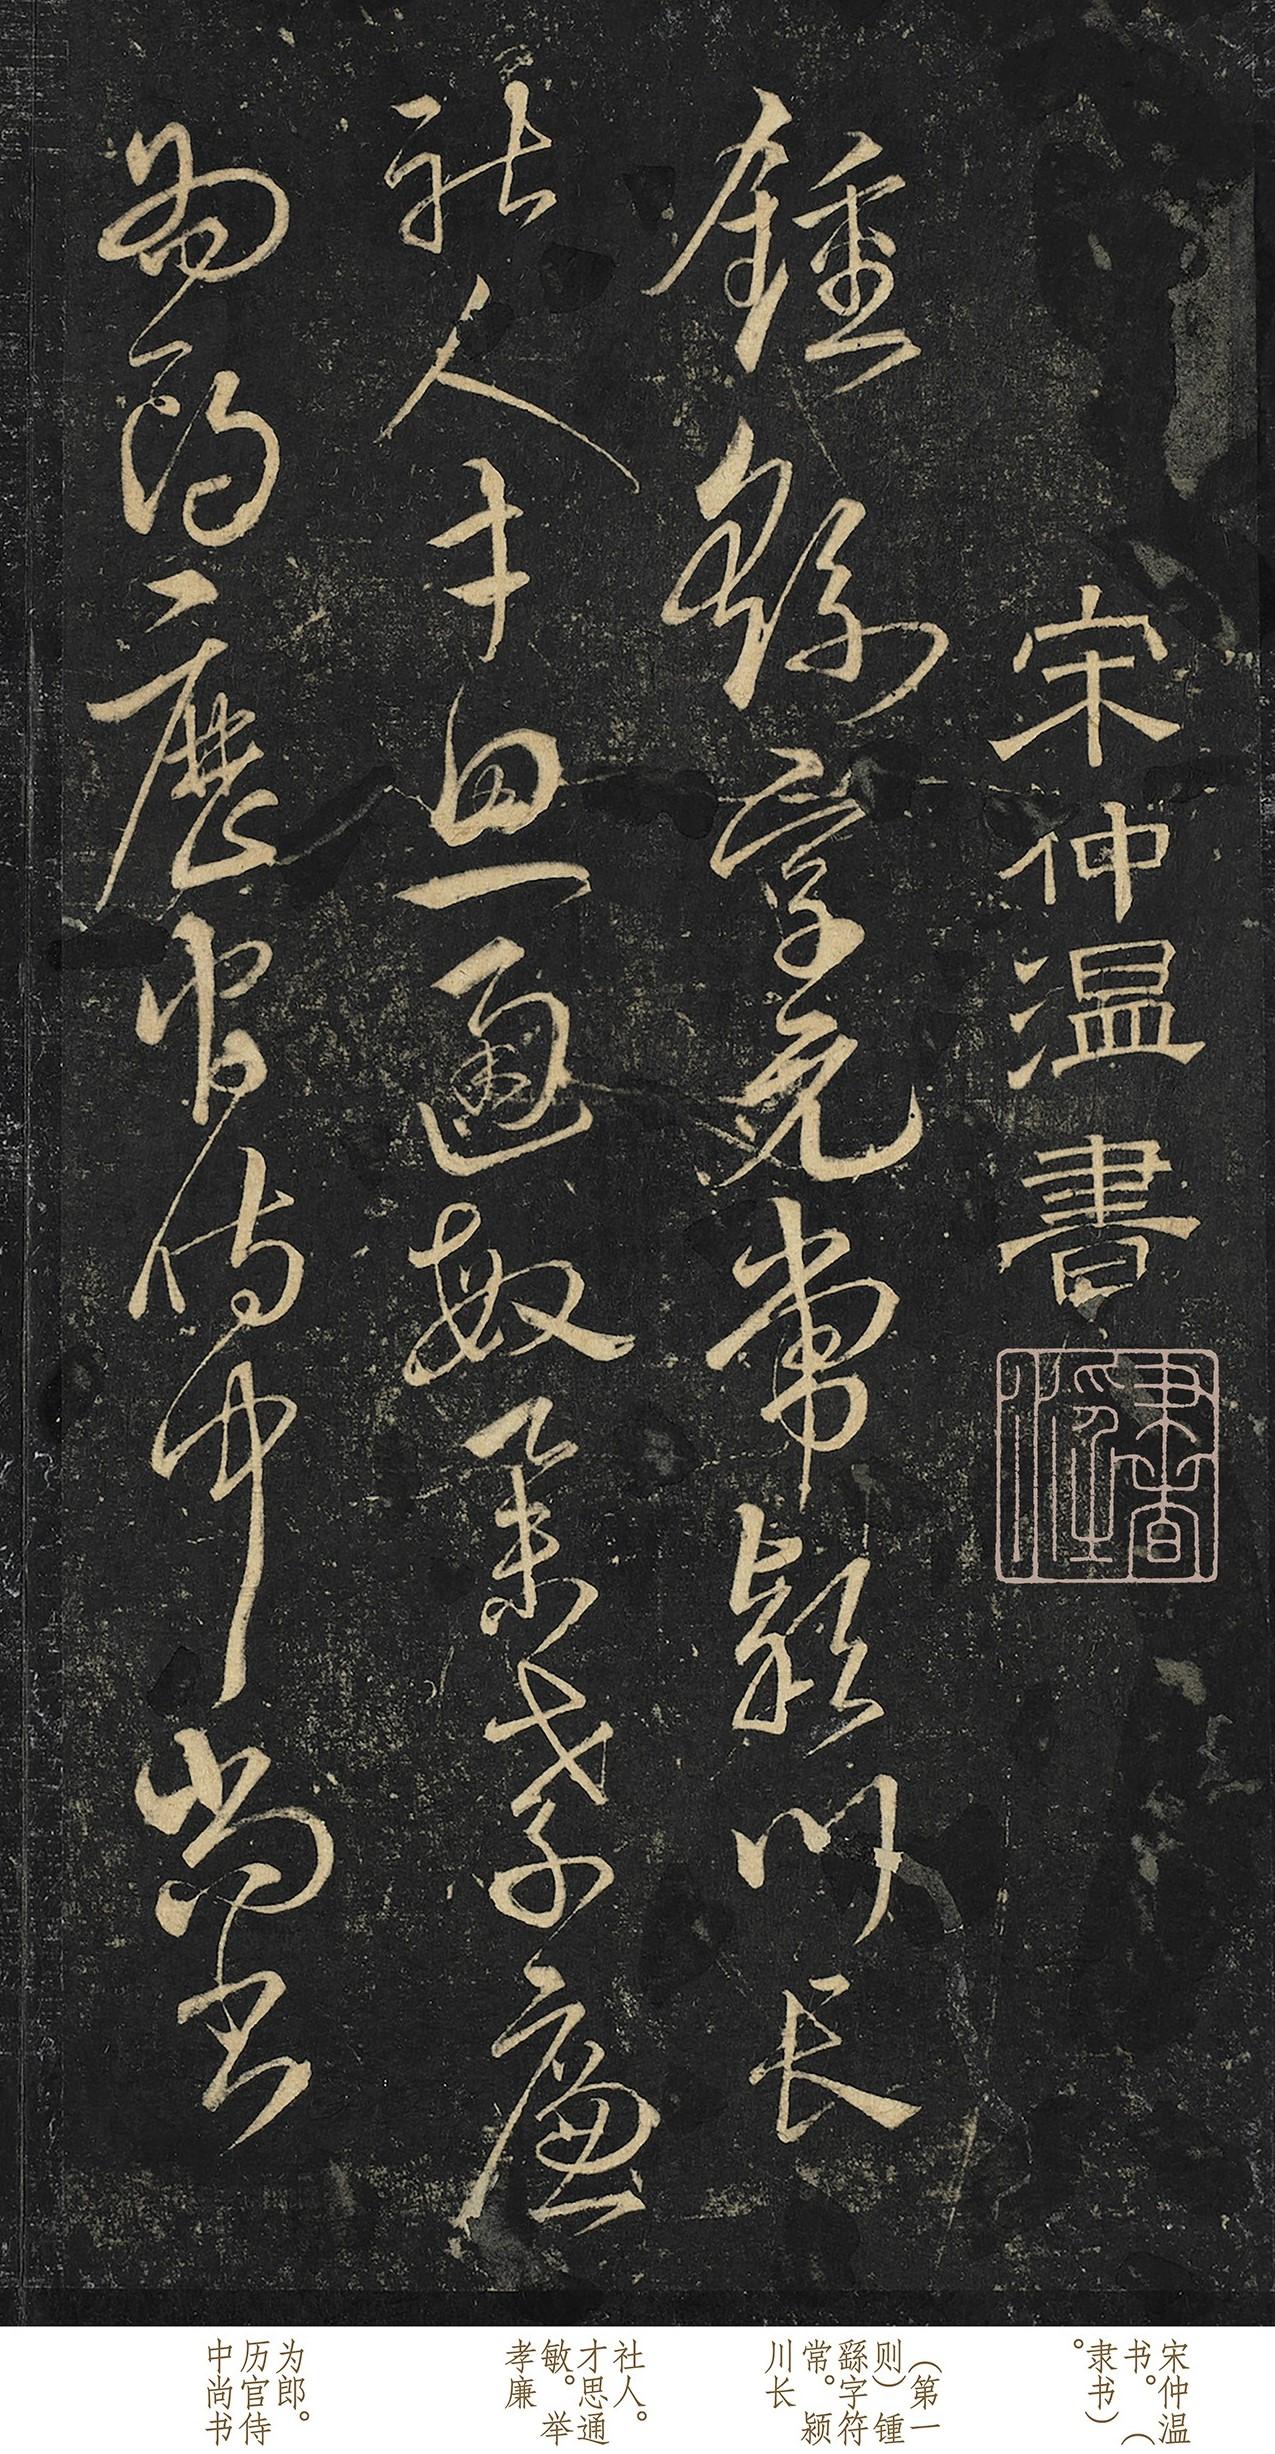 宋仲温書
鍾繇字元常潁川長
社人才思通敏舉孝廉
為郎歷官侍中尚書
宋仲温
书。（
隶书）
。
（第一
则）锺
繇字符
常。颍
川长
社人。
才思通
敏。举
孝廉
为郎。
历官侍
中尚书